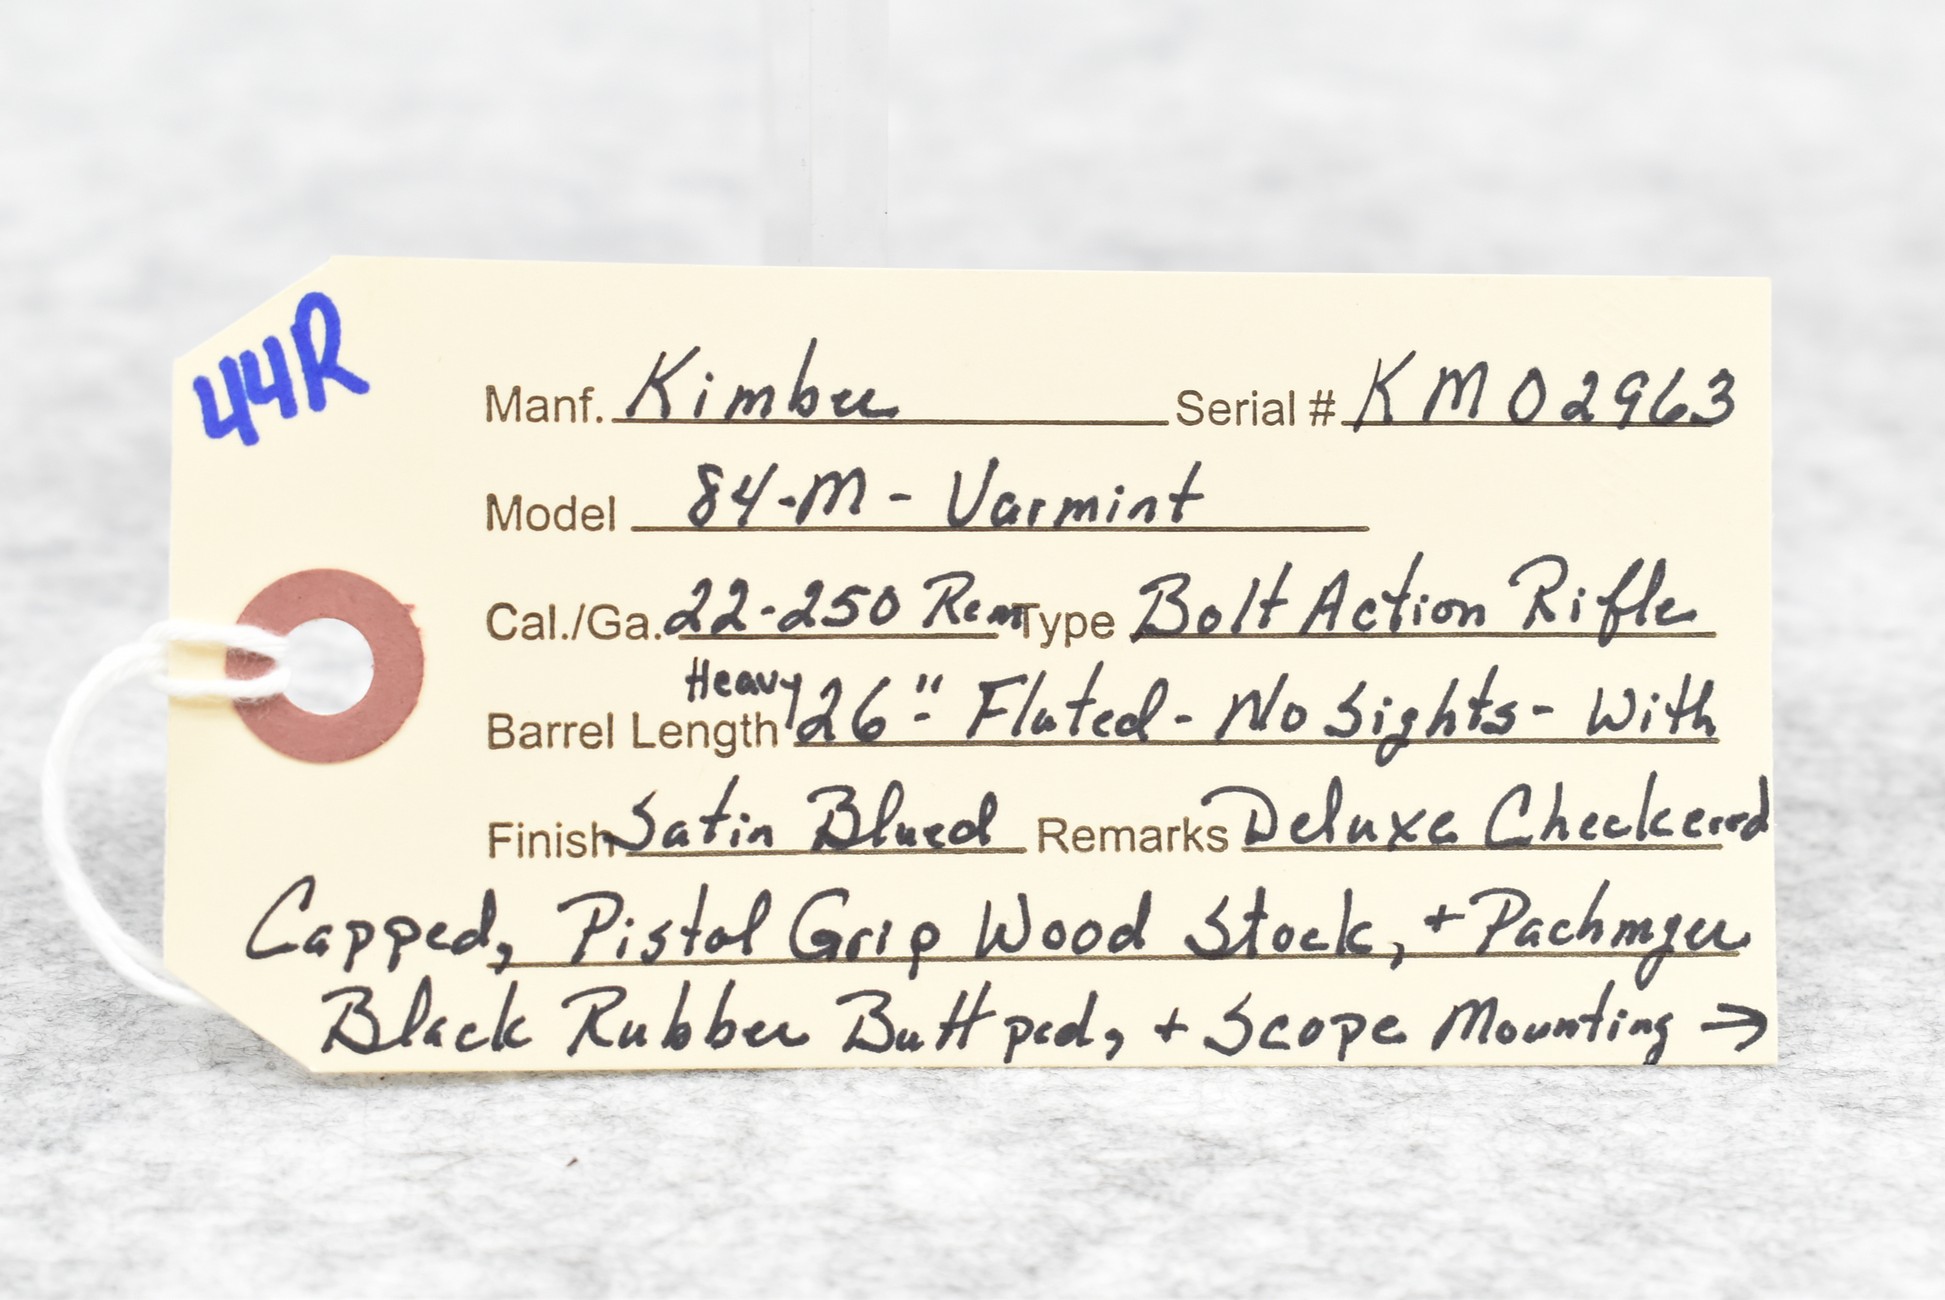 44R
Manf. Kimber Serial # KM02963
Model 84-M - Varmint
Cal./Ga. 22-250 Rem Type Bolt Action Rifle
Heavy
Barrel Length 26" Fluted - No Sights - With
Finish Satin Blued Remarks Deluxe Checkered
Capped, Pistol Grip Wood Stock, + Pachmyer
Black Rubber Butt pad, + Scope Mounting →